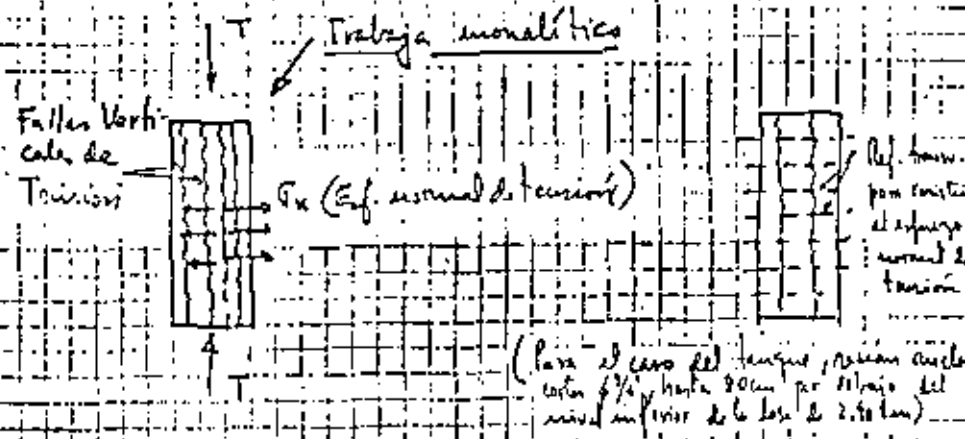 T
Trabaja monolítico
Fallas Verti-
cales de
Tensión
σx (Esf. normal de tensión)
Ref. transv.
para
el esfuerzo
normal de
tensión
T
(Para el caso del tanque,
hasta 80cm por debajo del
nivel inferior de la losa de